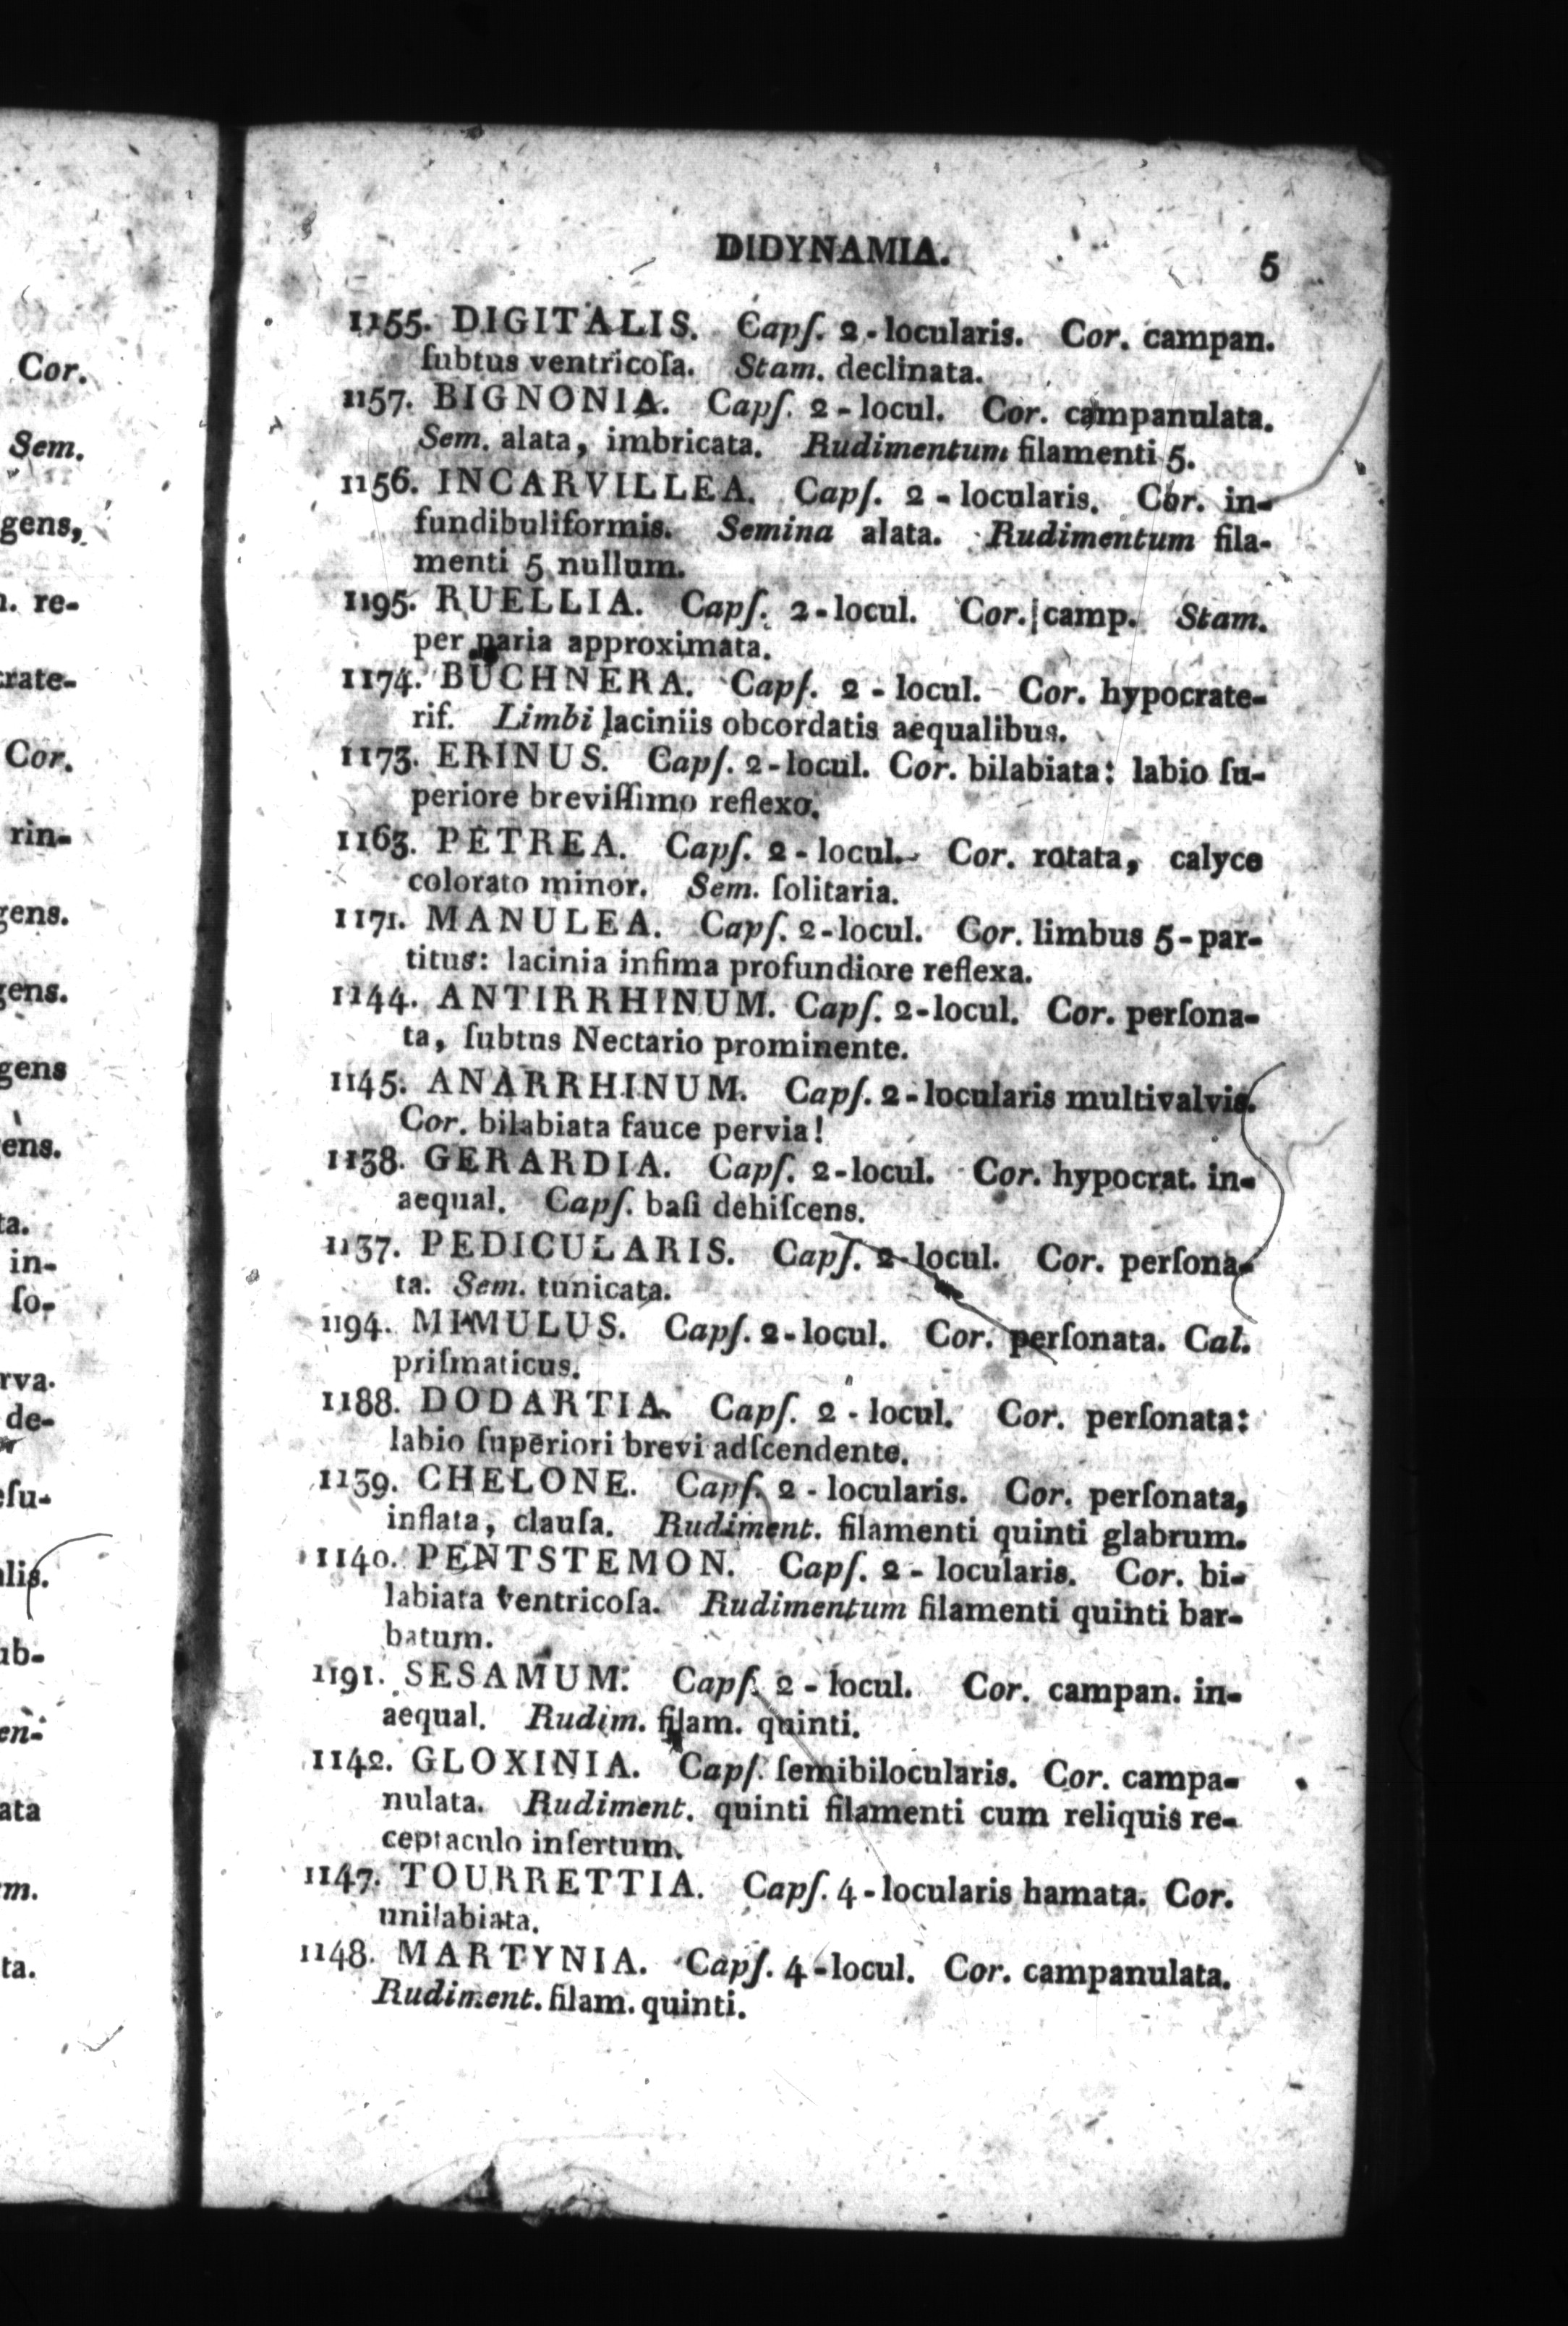 Cor.
Sem.
gens,
re-
Cor.
rin-
gens.
gens.
gens
ens.
ta.
in-
ſo-
rva.
de-
ta.
DIDYNAMIA. 5
1155. DIGITALIS. Capſ. 2-locularis. Cor. campan.
ſubtus ventricoſa. Stam. declinata.
1157. BIGNONIA. Capſ. 2-locul. Cor. campanulata.
Sem. alata, imbricata. Rudimentum filamenti 5.
1156. INCARVILLEA. Capſ. 2-locularis. Cor. in-
fundibuliformis. Semina alata. Rudimentum fila-
menti 5 nullum.
1195. RUELLIA. Capſ. 2-locul. Cor. camp. Stam.
per paria approximata.
1174. BUCHNERA. Capſ. 2-locul. Cor. hypocrate-
rif. Limbi laciniis obcordatis aequalibus.
1173. ERINUS. Capſ. 2-locul. Cor. bilabiata: labio ſu-
periore breviſſimo reflexo.
1163. PETREA. Capſ. 2-locul. Cor. rotata, calyce
colorato minor. Sem. ſolitaria.
1171. MANULEA. Capſ. 2-locul. Cor. limbus 5-par-
titus: lacinia infima profundiore reflexa.
1144. ANTIRRHINUM. Capſ. 2-locul. Cor. perſona-
ta, ſubtns Nectario prominente.
1145. ANARRHINUM. Capſ. 2-locularis multivalvis.
Cor. bilabiata fauce pervia!
1138. GERARDIA. Capſ. 2-locul. Cor. hypocrat. in-
aequal. Capſ. baſi dehiſcens.
1137. PEDICULARIS. Capſ. 2-locul. Cor. perſona-
ta. Sem. tunicata.
1194. MIMULUS. Capſ. 2-locul. Cor. perſonata. Cal.
priſmaticus.
1188. DODARTIA. Capſ. 2-locul. Cor. perſonata:
labio ſuperiori brevi adſcendente.
1139. CHELONE. Capſ. 2-locularis. Cor. perſonata,
inflata, clauſa. Rudiment. filamenti quinti glabrum.
1140. PENTSTEMON. Capſ. 2-locularis. Cor. bi-
labiata ventricoſa. Rudimentum filamenti quinti bar-
batum.
1191. SESAMUM. Capſ. 2-locul. Cor. campan. in-
aequal. Rudim. filam. quinti.
1142. GLOXINIA. Capſ. ſemibilocularis. Cor. campa-
nulata. Rudiment. quinti filamenti cum reliquis re-
ceptaculo inſertum.
1147. TOURRETTIA. Capſ. 4-locularis hamata. Cor.
unilabiata.
1148. MARTYNIA. Capſ. 4-locul. Cor. campanulata.
Rudiment. filam. quinti.